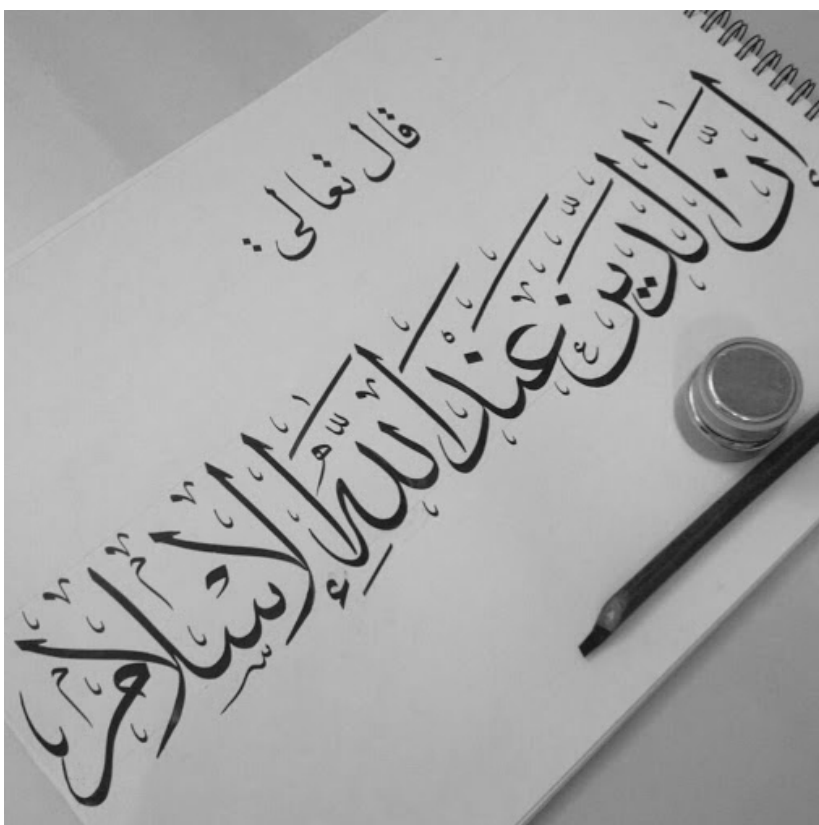 قال تعالى :
إنَّ الدِّينَ عِنْدَ اللّٰهِ الإسلام